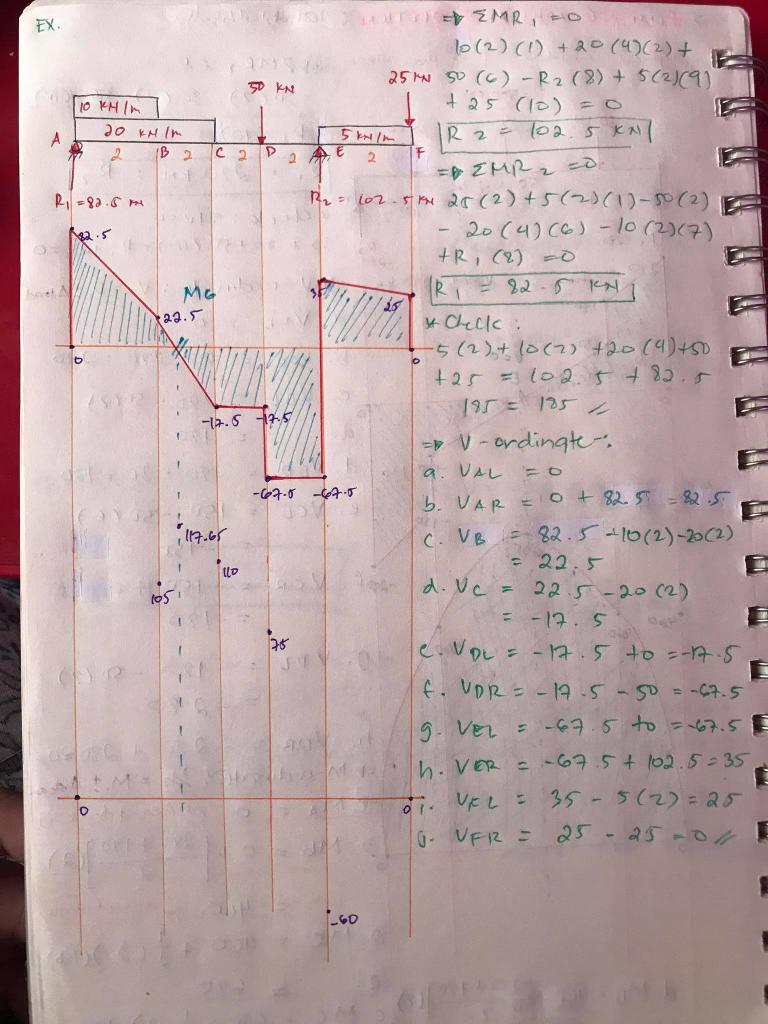 EX.
10 KN/m
20 KN/m
50 KN
25 KN
5 KN/m
A 2 B 2 C 2 D 2 E 2 F
R1 = 82.5 KN
R2 = 102.5 KN
82.5
MG
22.5
35
25
0
0
-17.5 -17.5
-67.5 -67.5
117.65
110
105
75
0
0
-60
=> ΣMR1 = 0
10(2)(1) + 20(4)(2) +
50(6) - R2(8) + 5(2)(9)
+ 25(10) = 0
R2 = 102.5 KN
=> ΣMR2 = 0
25(2) + 5(2)(1) - 50(2)
- 20(4)(6) - 10(2)(7)
+ R1(8) = 0
R1 = 82.5 KN
* Check:
5(2) + 10(2) + 20(4) + 50
+ 25 = 102.5 + 82.5
185 = 185 //
=> V-ordinate:
a. VAL = 0
b. VAR = 0 + 82.5 = 82.5
c. VB = 82.5 - 10(2) - 20(2)
= 22.5
d. VC = 22.5 - 20(2)
= -17.5
e. VDL = -17.5 + 0 = -17.5
f. VDR = -17.5 - 50 = -67.5
g. VEL = -67.5 + 0 = -67.5
h. VER = -67.5 + 102.5 = 35
i. VFL = 35 - 5(2) = 25
j. VFR = 25 - 25 = 0 //